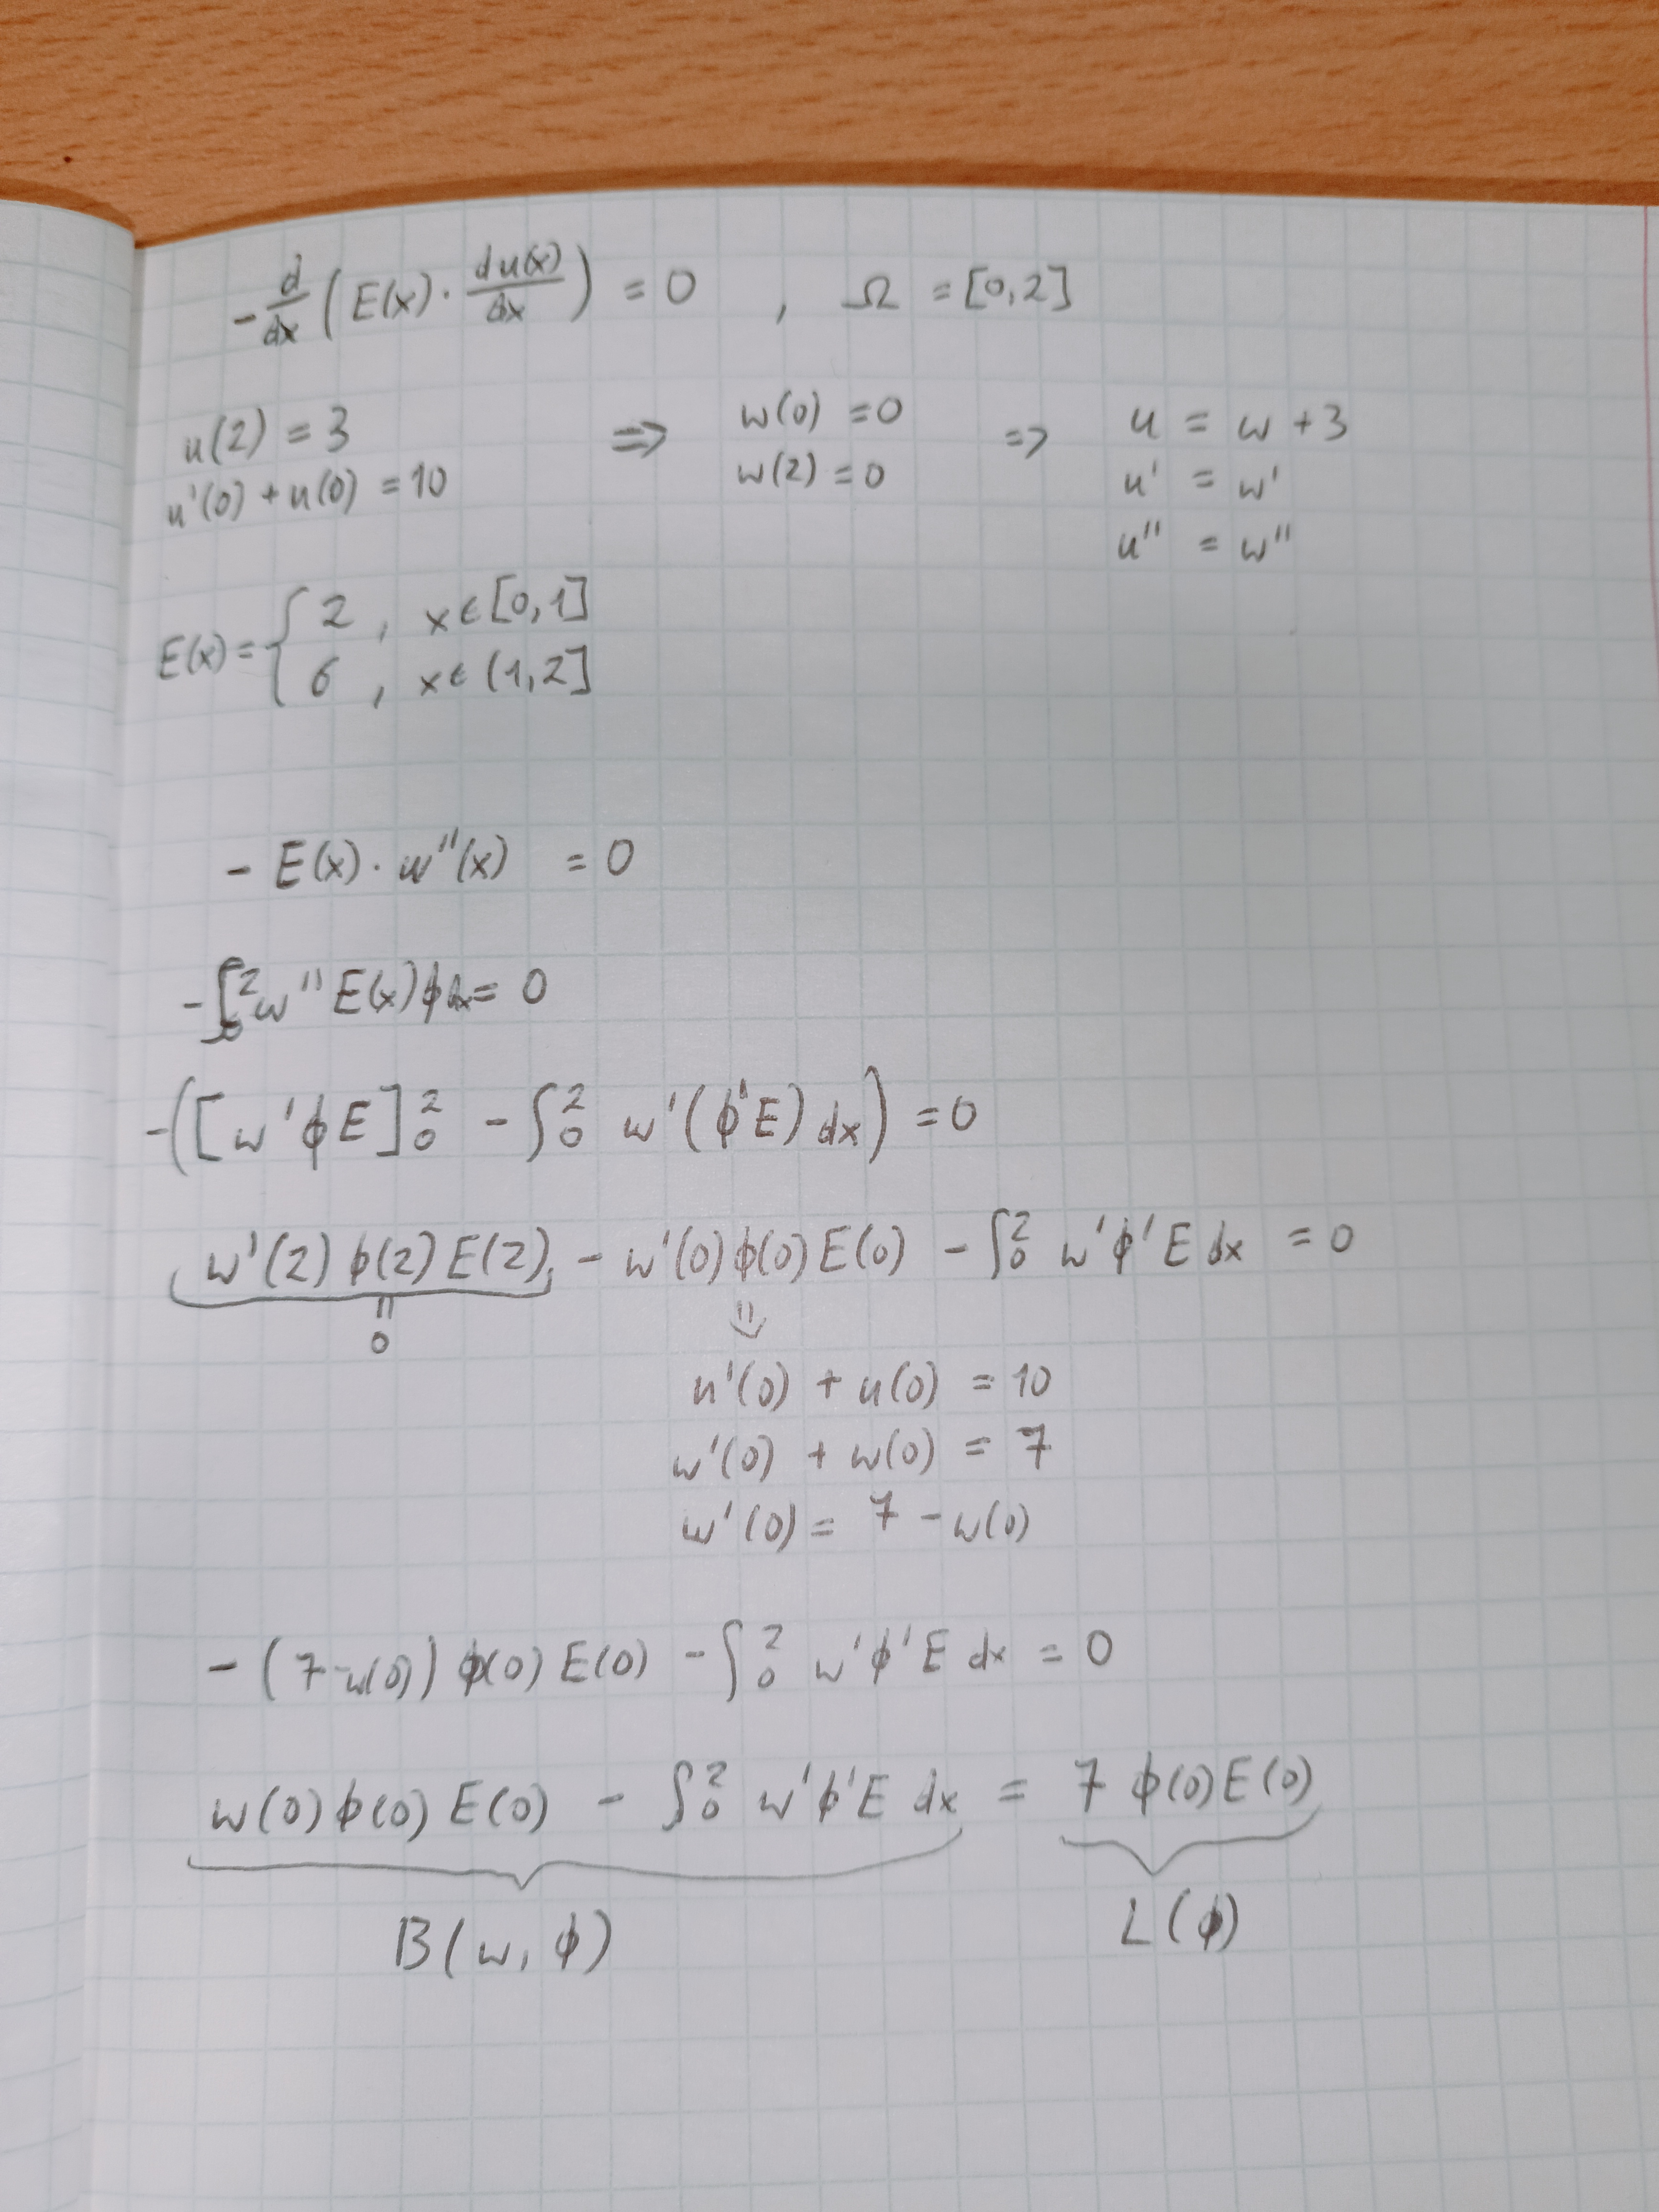 -d/dx (E(x) · du(x)/dx) = 0 , Ω = [0,2]
u(2) = 3 ⇒ w(0) = 0 ⇒ u = w + 3
u'(0) + u(0) = 10 w(2) = 0 u' = w'
u'' = w''
E(x) = { 2 , x ∈ [0,1]
6 , x ∈ (1,2]
- E(x) · w''(x) = 0
-∫₀² w'' E(x) ϕ dx = 0
-([w'ϕE]₀² - ∫₀² w'(ϕ'E) dx) = 0
w'(2) ϕ(2) E(2) - w'(0) ϕ(0) E(0) - ∫₀² w'ϕ'E dx = 0
= ⇓
0
u'(0) + u(0) = 10
w'(0) + w(0) = 7
w'(0) = 7 - w(0)
- (7-w(0)) ϕ(0) E(0) - ∫₀² w'ϕ'E dx = 0
w(0) ϕ(0) E(0) - ∫₀² w'ϕ'E dx = 7 ϕ(0) E(0)
B(w, ϕ) L(ϕ)